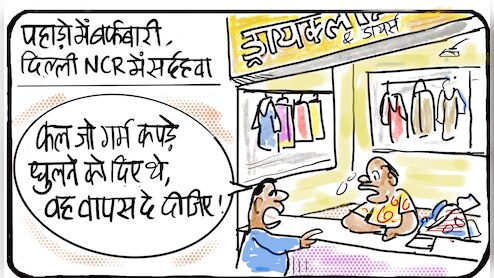 पहाड़ो में बर्फबारी,
दिल्ली NCR में सर्द हवा
ड्रायक्लीनर्स
& डायर्स
कल जो गर्म कपड़े
धुलने को दिए थे,
वह वापस दे दीजिए!